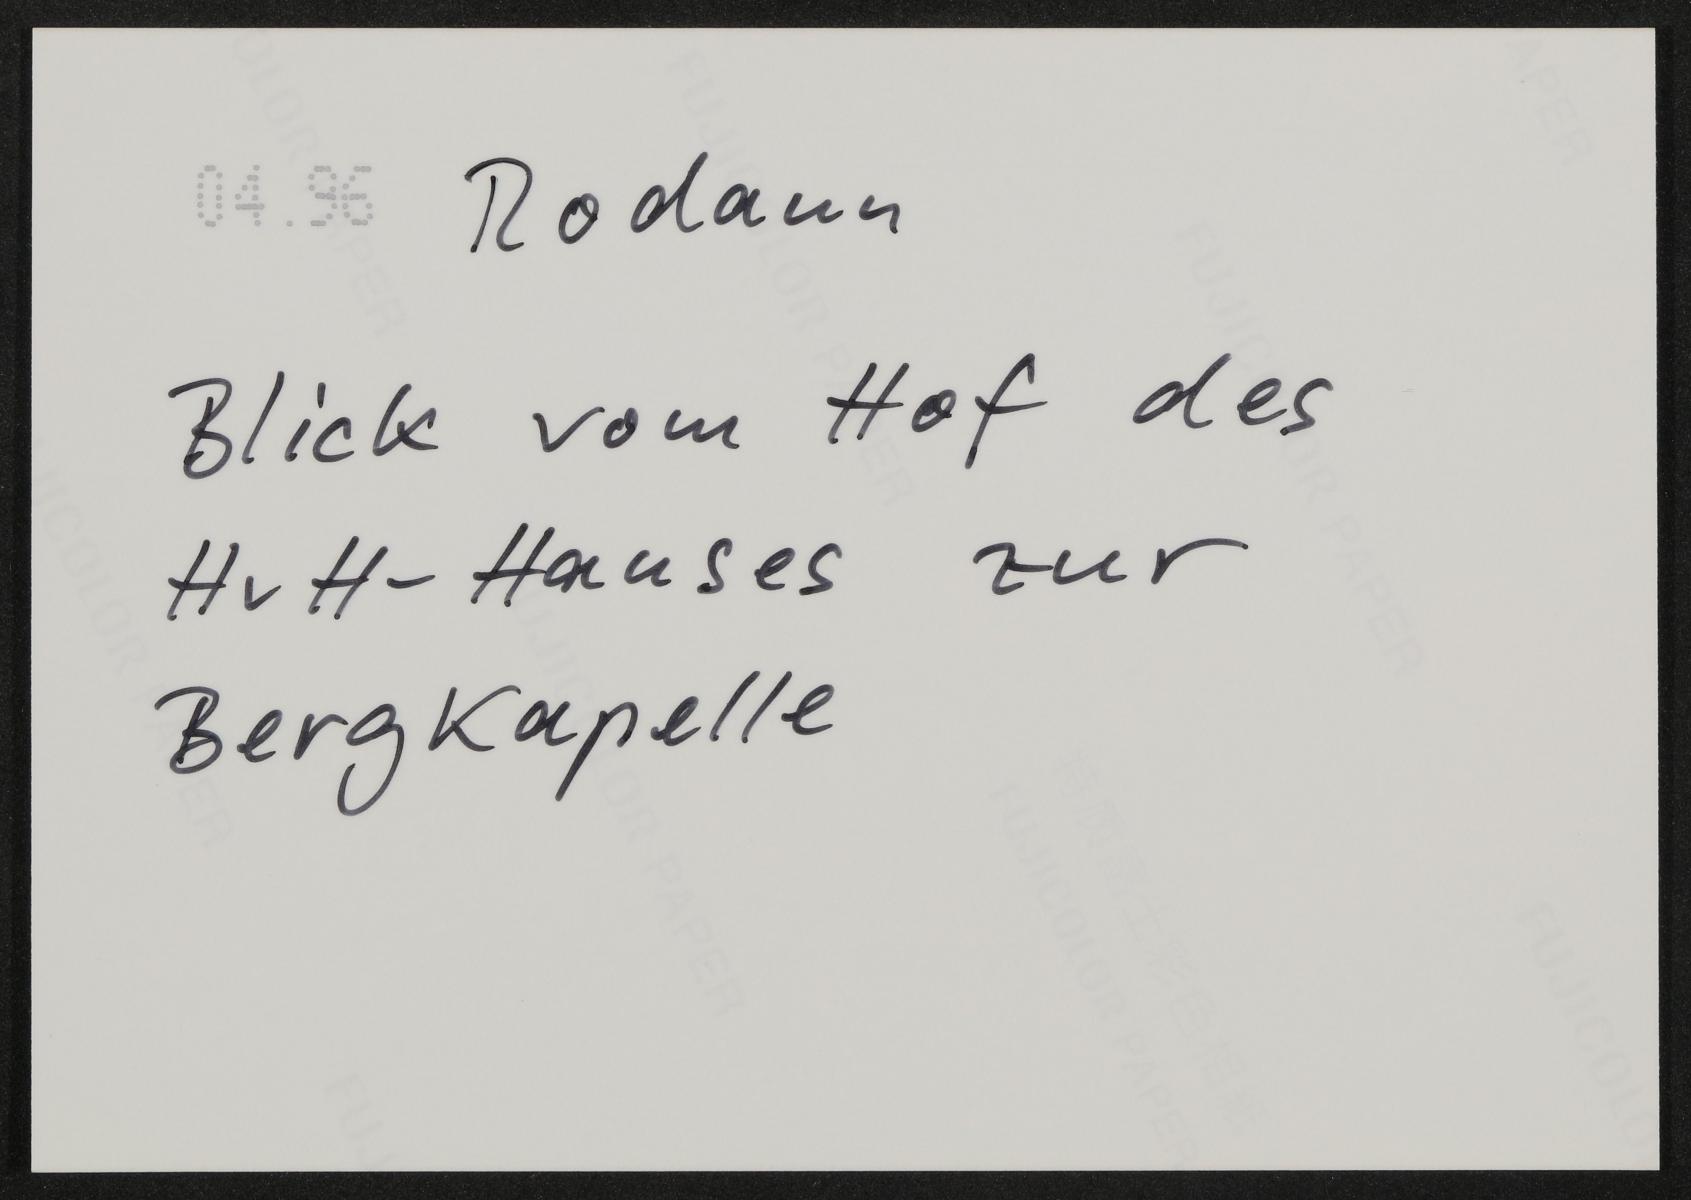 04.96 Rodaun
Blick vom Hof des
HvH-Hauses zur
Bergkapelle
FUJICOLOR PAPER